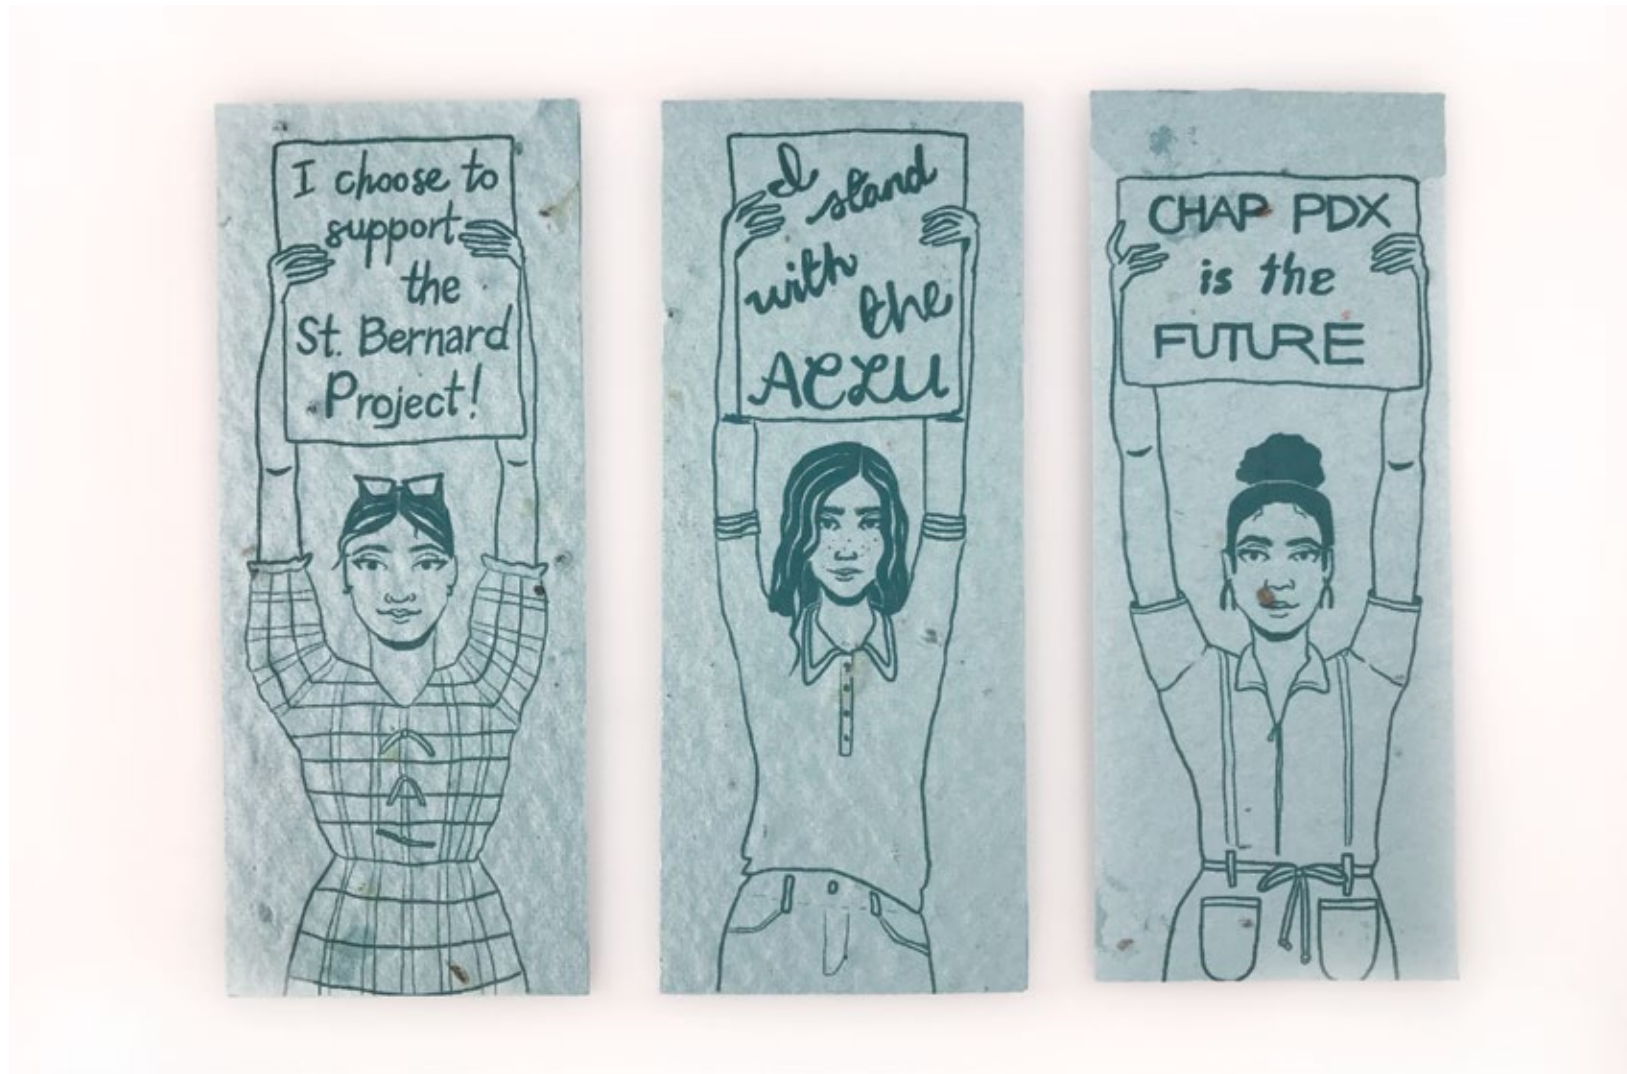 I choose to
support
the
St. Bernard
Project!
I
stand
with
the
ACLU
CHAP PDX
is the
FUTURE